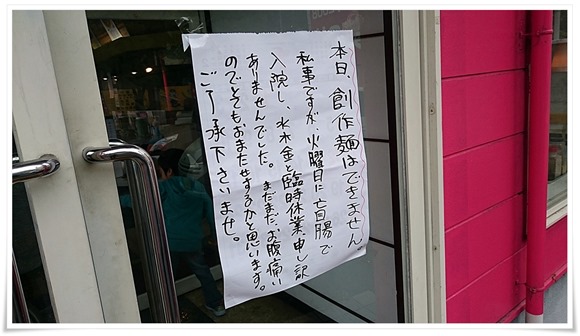 本日、創作麺はできません
私事ですが、火曜日に盲腸で
入院し、水木金と臨時休業、申し訳
ありませんでした。まだまだ、お腹痛い
のでとてもおまたせするかと思います。
ご了承下さいませ。